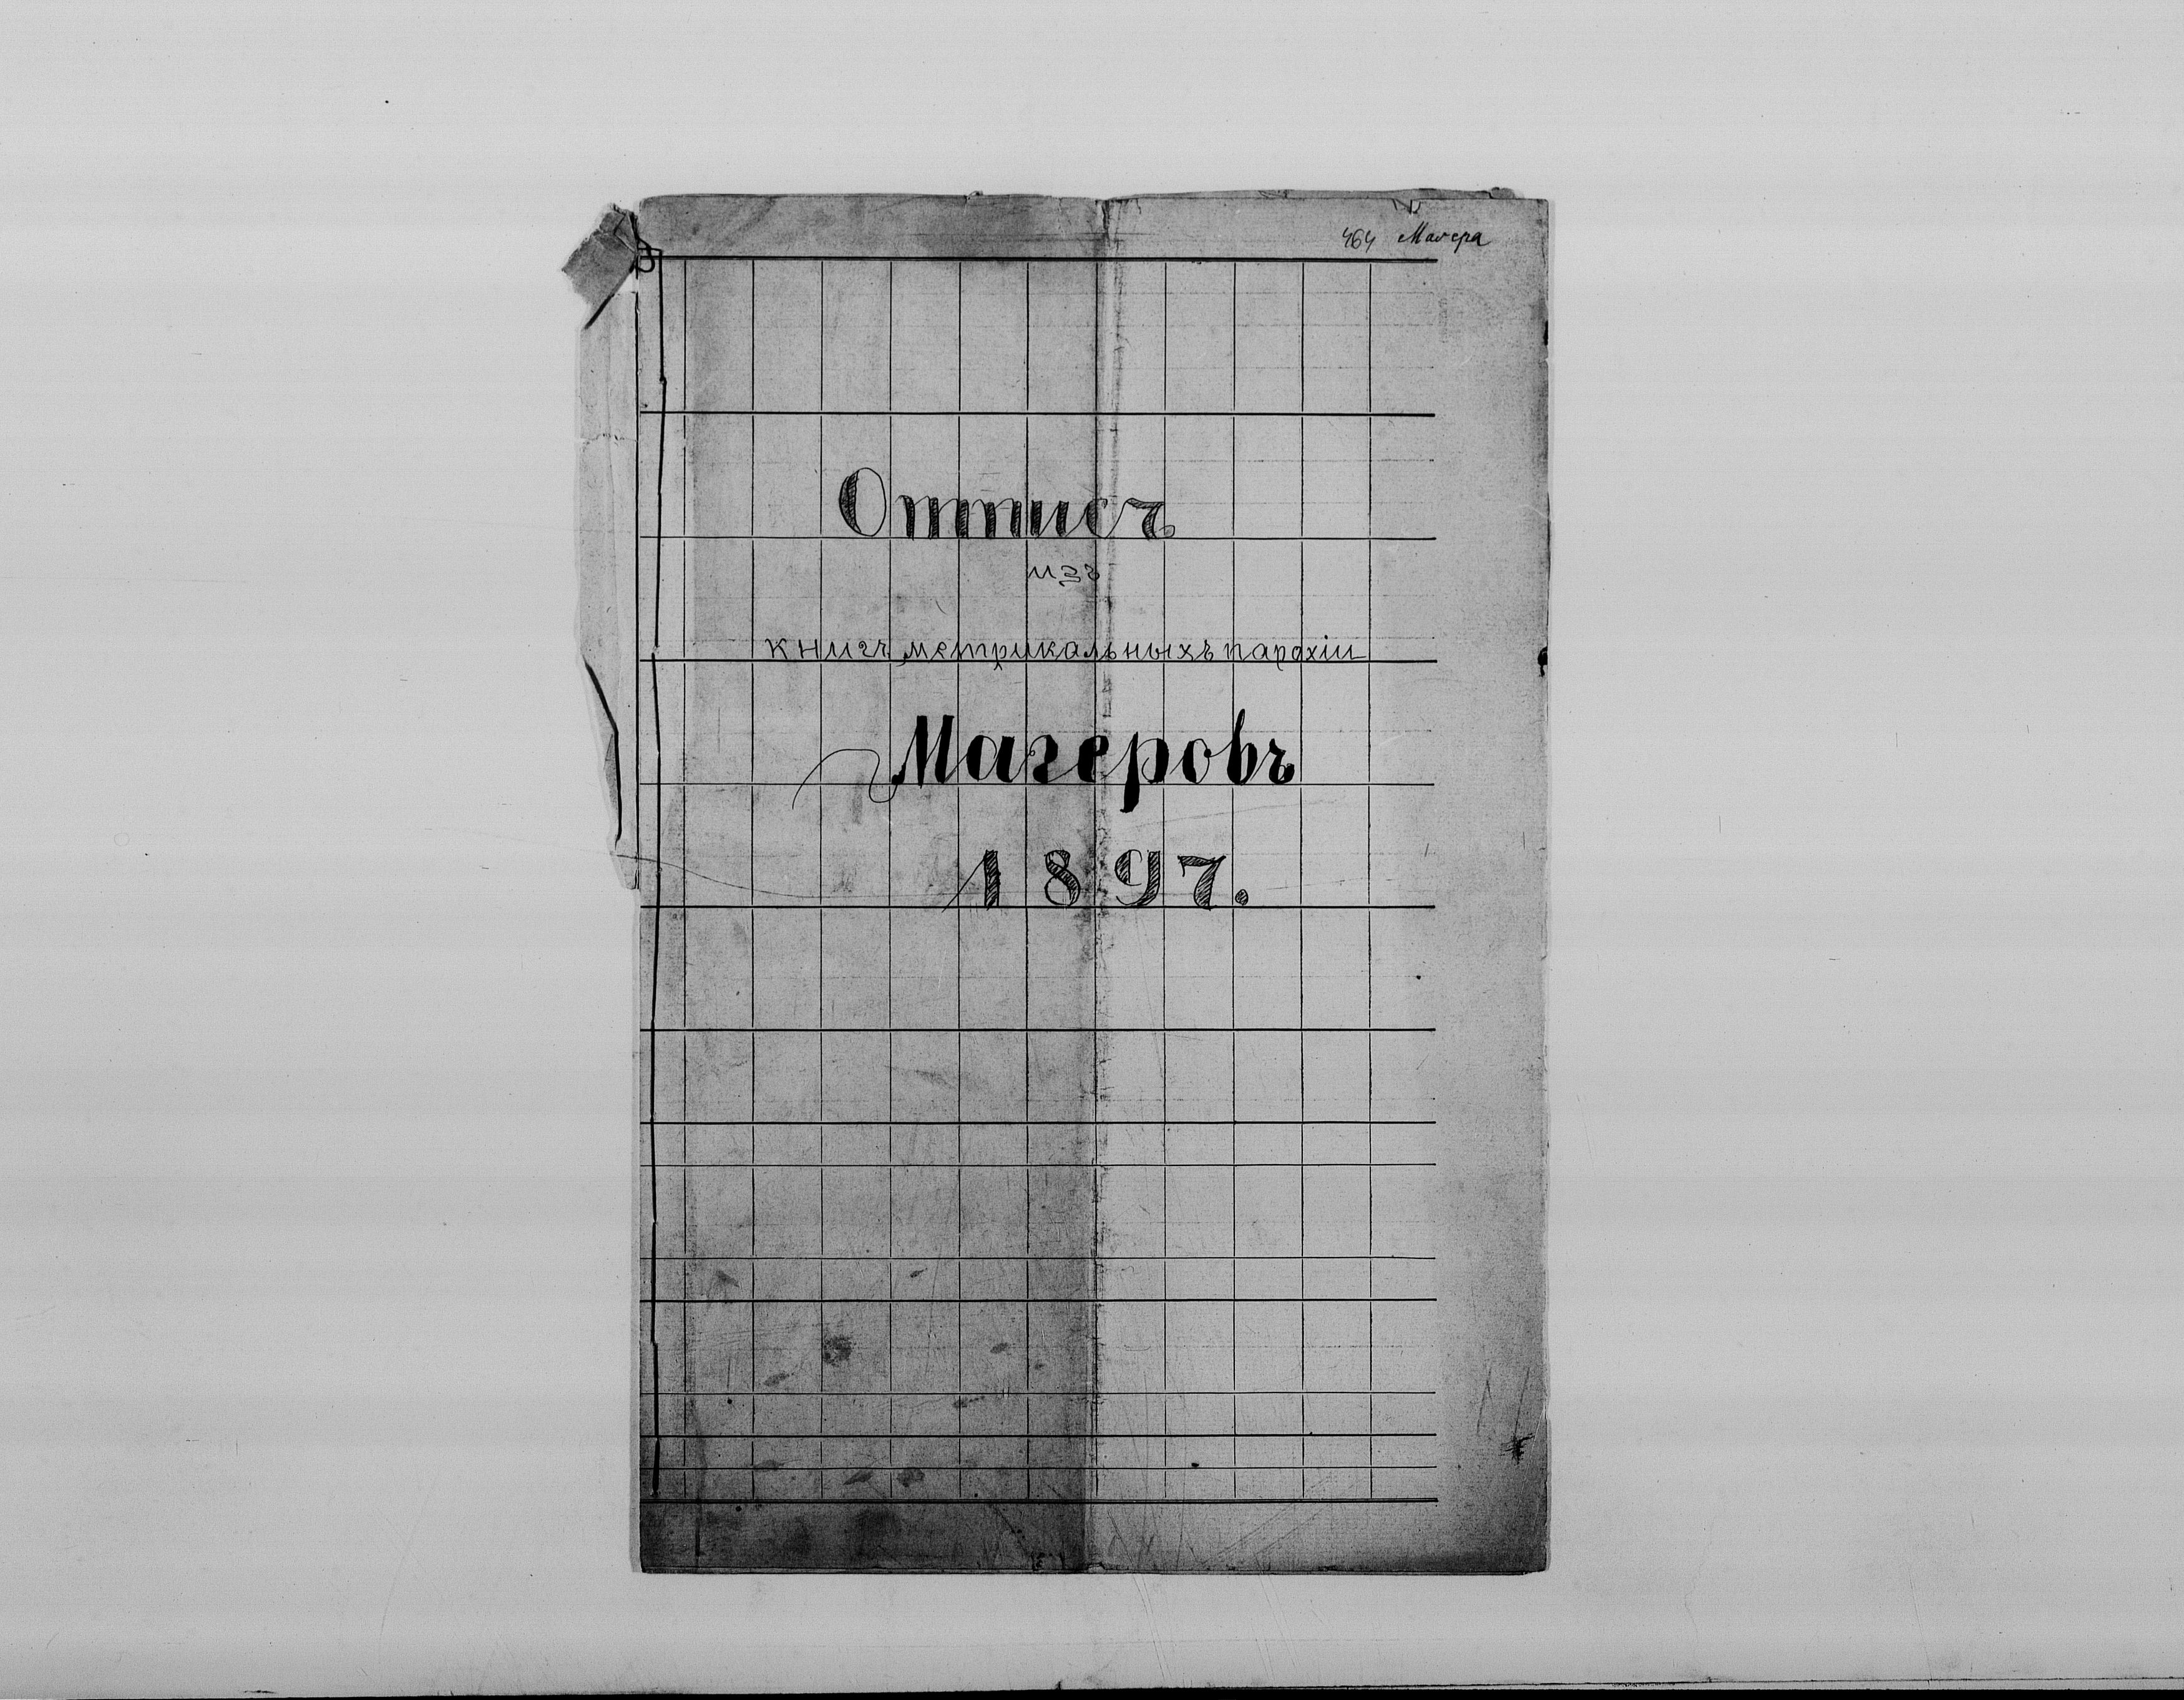 464 Магера
Отписъ
изъ
книгъ метрикальныхъ парохіи
Магеровъ
1897.